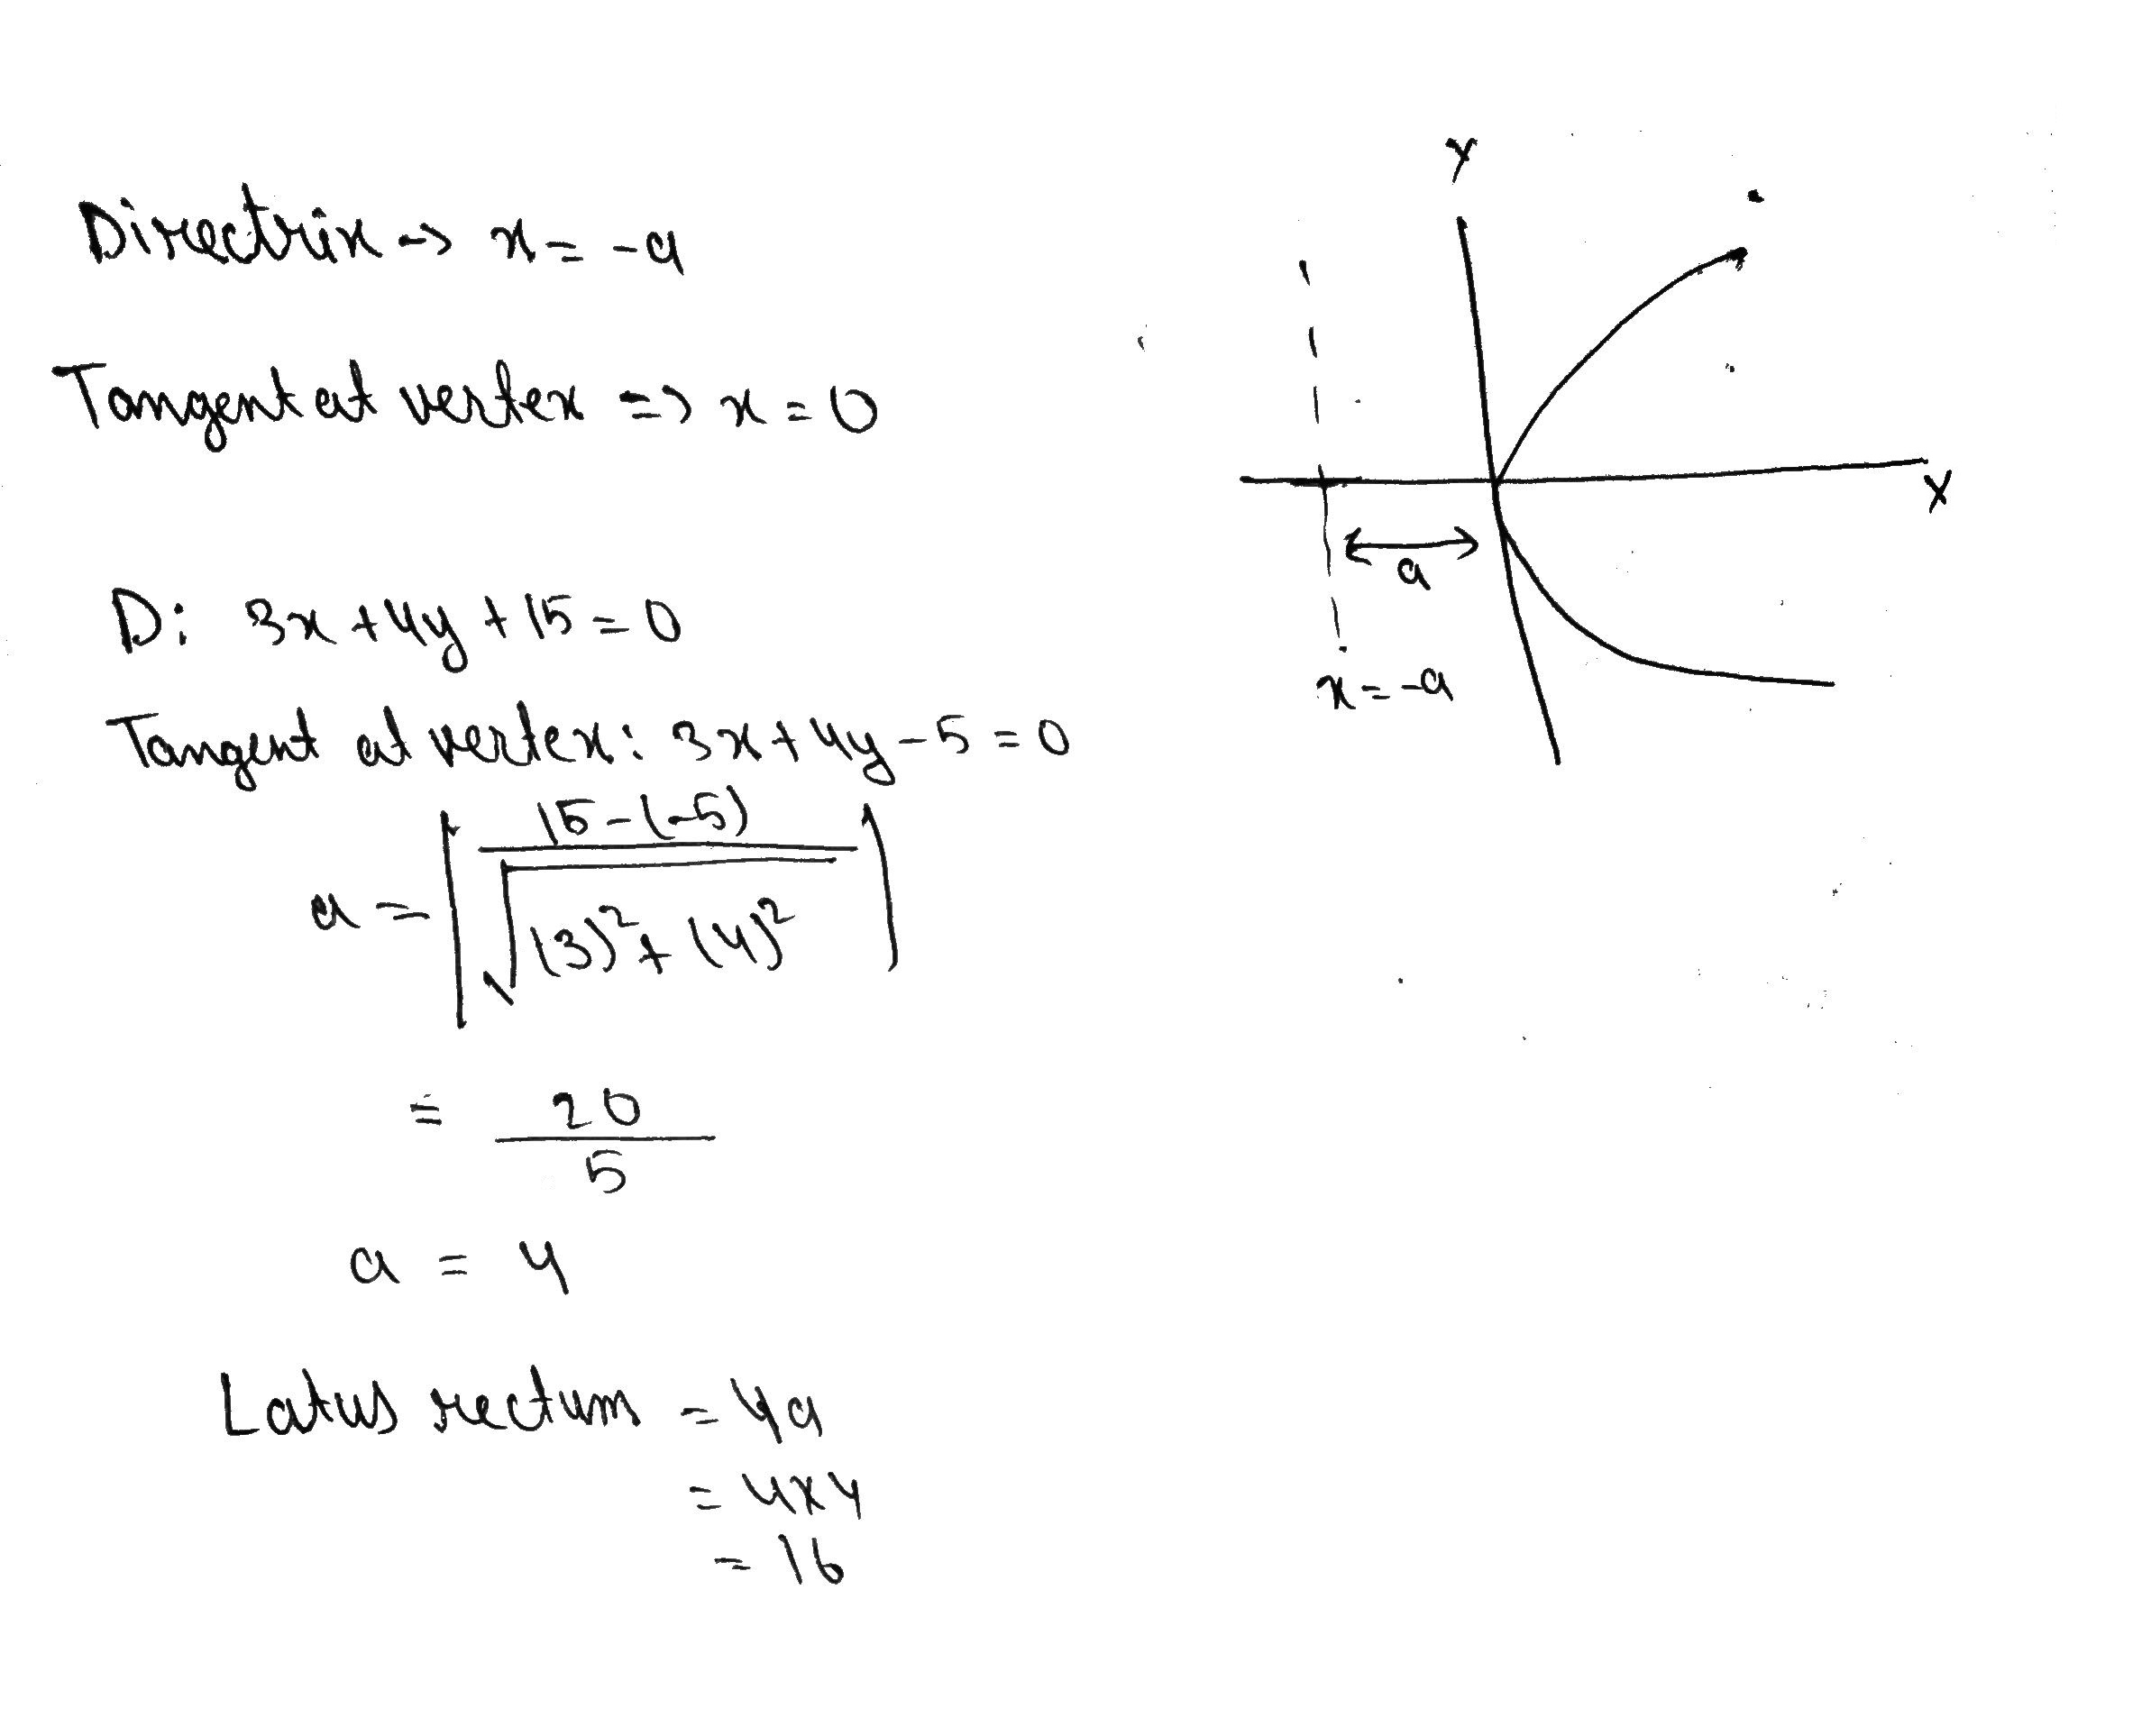 Directrix -> x = -a
Tangent at vertex => x = 0
D: 3x + 4y + 15 = 0
Tangent at vertex: 3x + 4y - 5 = 0
a = | 15 - (-5) / √(3)² + (4)² |
= 20 / 5
a = 4
Latus rectum = 4a
= 4x4
= 16
Y
X
a
x = -a